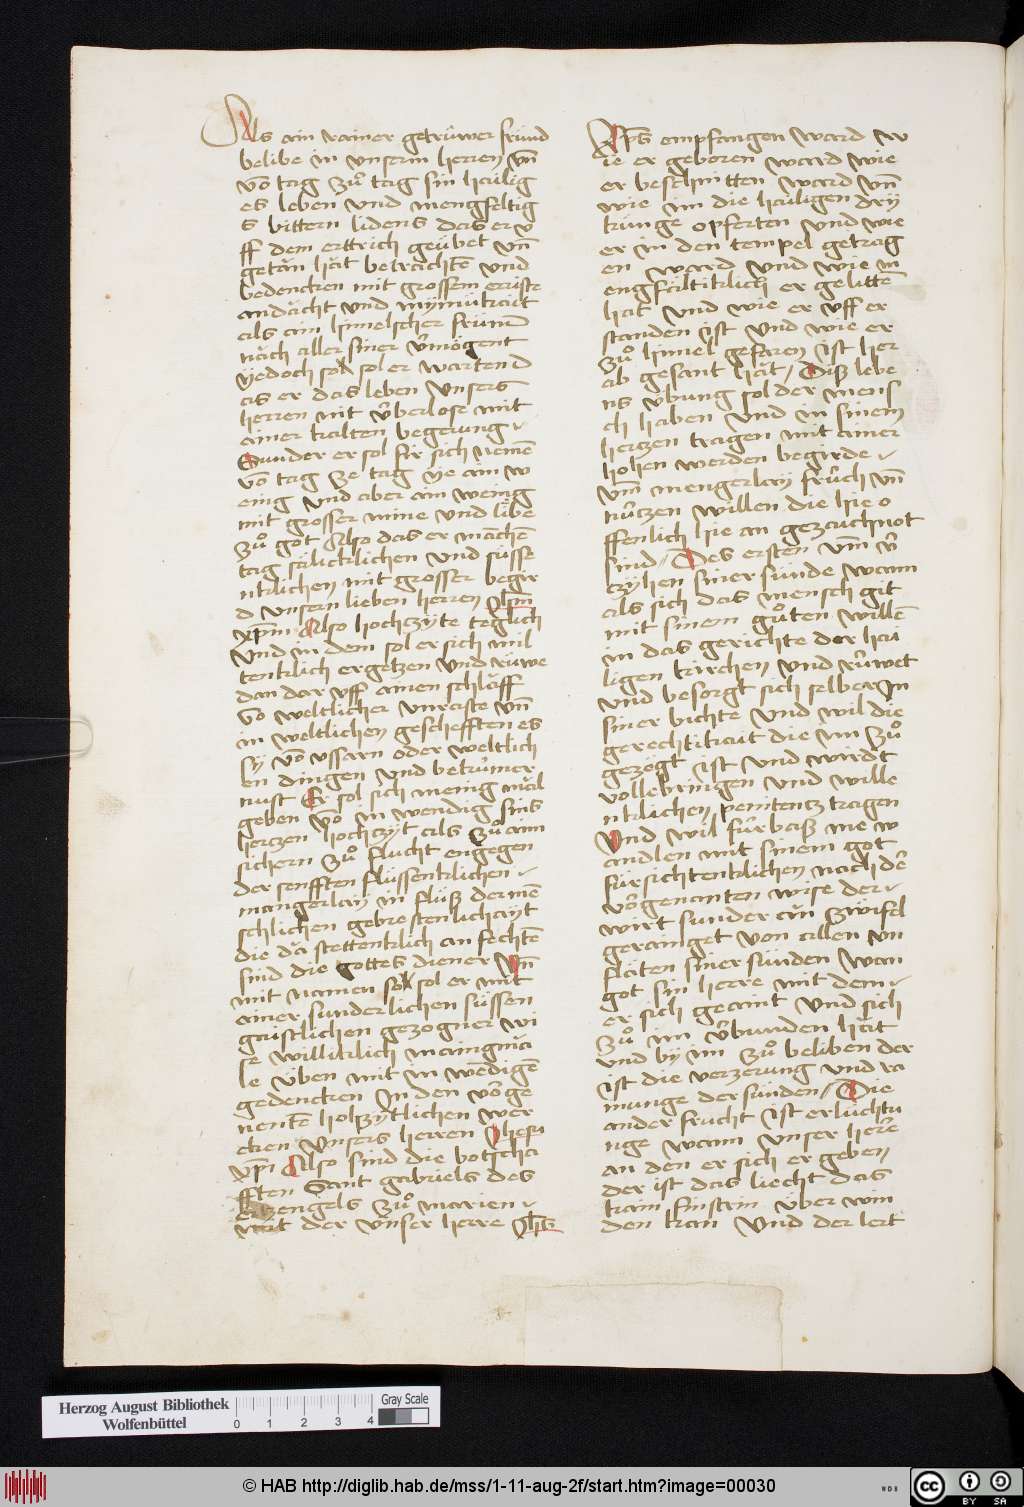 Als ain rainer getrüwer fründ
belibe in vnserm herren vn̄
vō tag zů tag sin hailig
es leben vnd mengfeltig
s bittern lidens das er v
ff dem ertrich geübet vn̄
getän hät betrachtē vnd
bedencken mit grossem erriste
andächt vnd
als ain himelscher fründ
näch aller siner v̄mögent
yedoch sol er wartend
as er das leben vnsers
herren nit v̈berlose mit
ainer kalten begerung
Sunder er sol für sich nemē
vō tag ze tag ye ain w
enig vnd aber ain wenig
mit grosser mine vnd liebe
zů got Also das er manchē
tag sälicklichen vnd süsse
ntklichen mit grosser begir
d vnsern lieben herren Jhm̄
xp̄m Also hochzyte teglich
Vnd in dem sol er sich mil
tentklich ergetzen vnd rüwe
dan dar vff ainen schläff
vō weltlicher vnraste vn̄
in weltlichen geschefften es
sy vō vssarn oder weltlich
en dingen vnd betrümer
nust Er sol sich menig mäl
geben vō in wendig sins
herczen hochzyt als zů aim
sichern zů flucht engegen
der senfften flüssentklichen
mangerlay in flüss der mē
schlichen gebrestenlichayt
die dä stettenklich an fechtē
sind die gottes diener Vn̄
mit namen sol er mit
ainer sunderlichen süssen
gaistlichen gezogner wi
se williklich maingmä
le üben mit in wēdigē
gedencken In den vōrge
nentē hohzytlichen wer
cken vnsers herren Jhesu
xp̄m Also sind die botscha
fften Sant gabriels des
erczengels zů marien
wart der vnser herre Jhs̄
Xp̄s empfangen ward w
ie er geboren ward wie
er beschnitten ward vn̄
wie im die hailigen dry
künge opferten vnd wie
er in den tempel getrag
en ward vnd wie m
engfältiklich er gelittē
hat vnd wie er vff er
standen ist vnd wie er
zů himel gefaren ist her
ab gesant hät Diss lebe
ns v̈bung sol der mens
ch haben vnd in sinem
herczen tragen mit ainer
hohen werden begirde
vm̄ mengerlay frücht vn̄
nüczen willen die hie o
ffenlich hie an gezaichnot
sind Des ersten vm̄ v̄
czyhen siner sünde wann
als sich das mensch git
mit sinem gůten willē
in das gerichte der hai
ligen kirchen vnd rüwet
vnd besorgt sich selber in
siner bichte vnd wil die
gerechtikait die im zů
gezögt ist vnd wirdt
vollebringen vnd wille
ntklichen penitencz tragen
Vnd wil fürbass me w
andlen mit sinem got
fürsichtenklichen nach dē
vōrgenanten wise der
wirt sunder än zwifel
gerainget von allen vn
fläten siner sünden wan
got sin herre mit dem
er sich geaint vnd sich
zů im v̄bunden hät
vnd by im zů beliben der
ist die verzerung vnd ra
munge der sünden Die
ander frucht ist erluchtu
nge wann vnser herē
an den er sich er geben
der ist das liecht das
kain finstrin über win
den kan Vnd der lert
Herzog August Bibliothek
Wolfenbüttel
0 1 2 3 4
Gray Scale
© HAB http://diglib.hab.de/mss/1-11-aug-2f/start.htm?image=00030
WDB
cc
BY SA